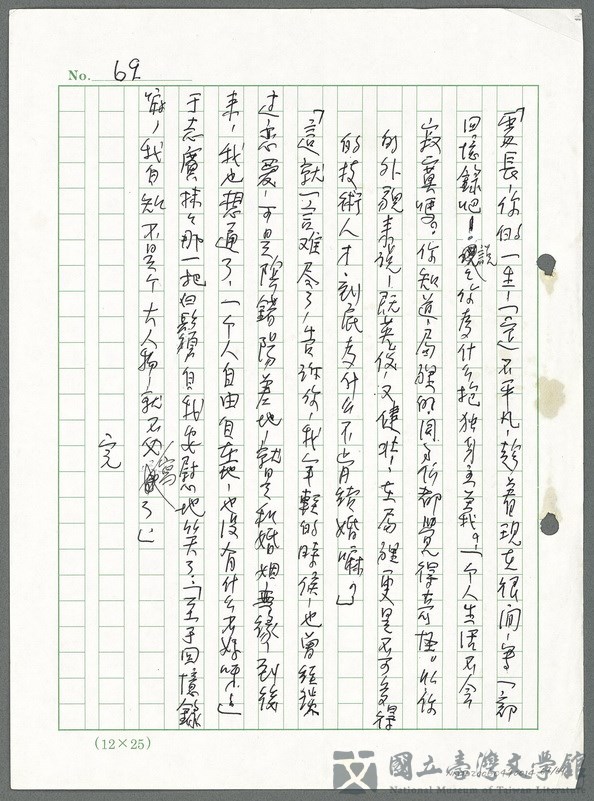 No. 69
「賈長，你的一生，一定不平凡，趁着現在很閒，寫一部
回憶錄吧！說說你為什么抱独身主義。一个人生活不会
寂寞嗎？你知道，局裡的同事們都覺得奇怪。以你
的外貌來說，既英俊，又健壯，在局裡更是不可多得
的技術人才，到底為什么不肯結婚嘛？」
「這就一言难尽了，告訴你，我年輕的時候，也曾經談
过恋爱，可是陰錯陽差地，就是和婚姻無緣，到後
來，我也想通了，一个人自由自在地，也沒有什么不好呀！」
于志實抹抹那一把白鬍鬚自我安慰地笑了：「至于回憶錄
嘛，我自知不是个大人物，就不必寫了！」
完
(12×25)
國立臺灣文學館
National Museum of Taiwan Literature